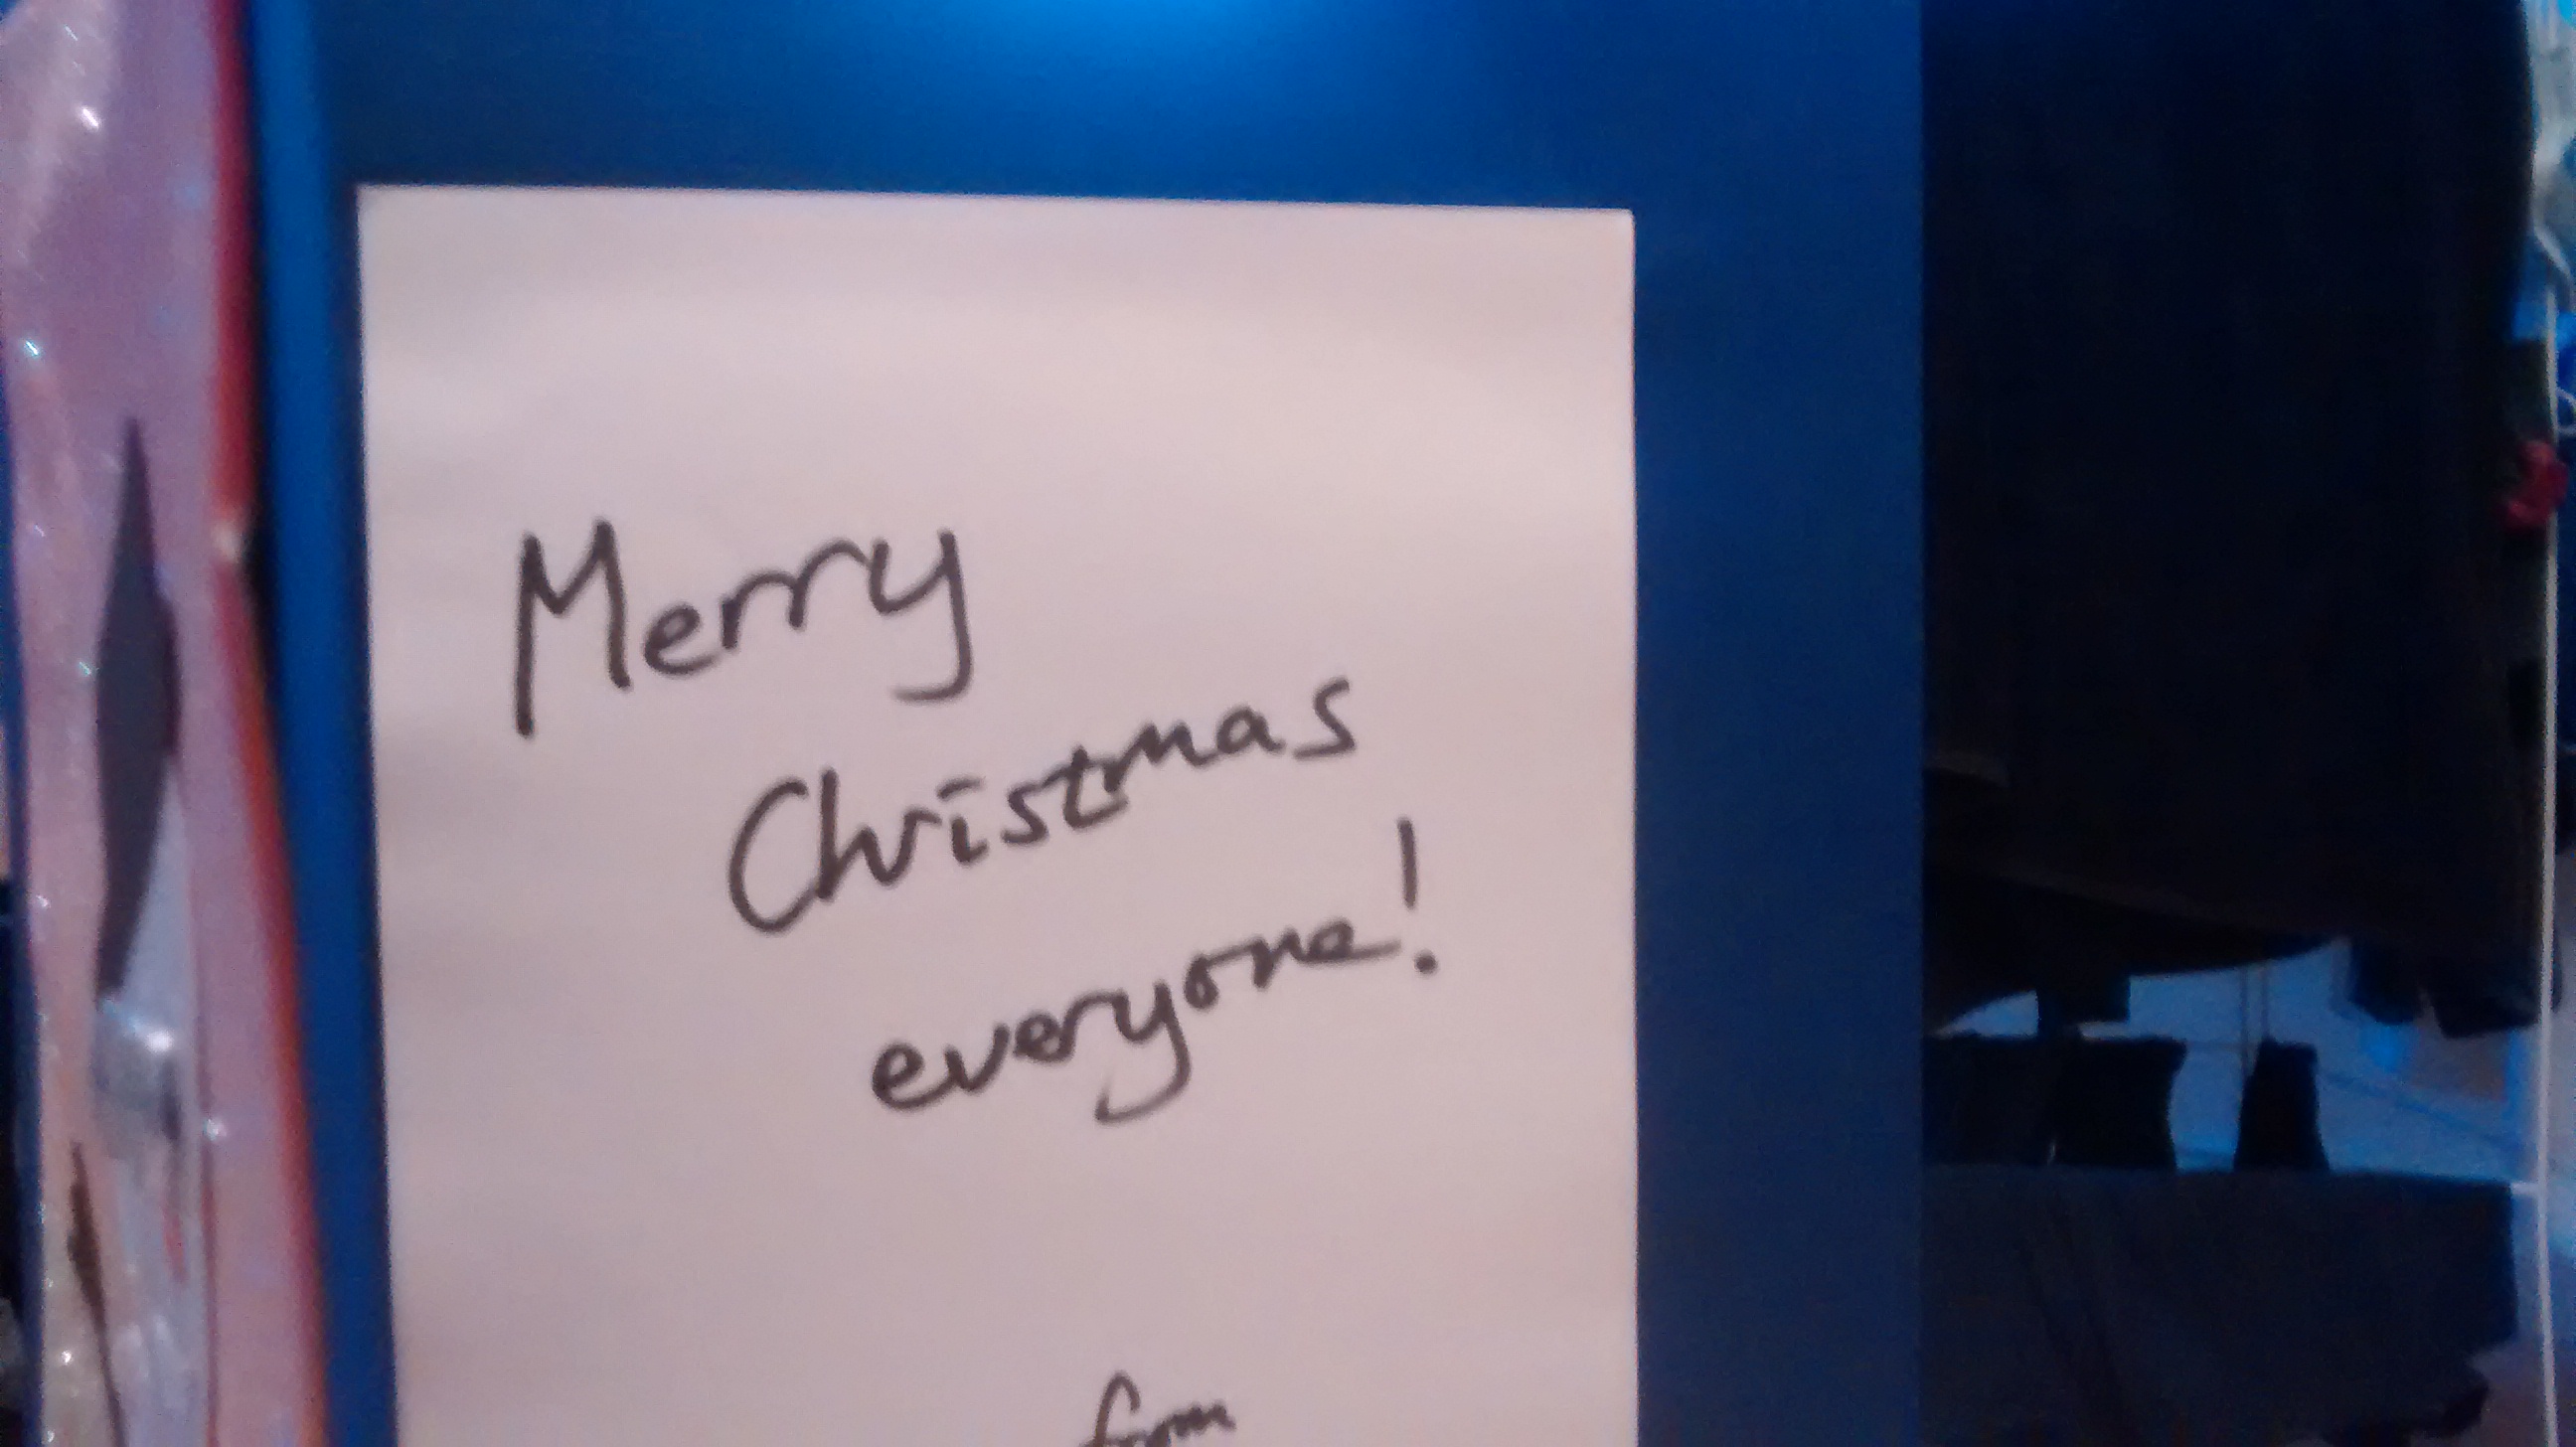 Merry
Christmas
everyone!
from